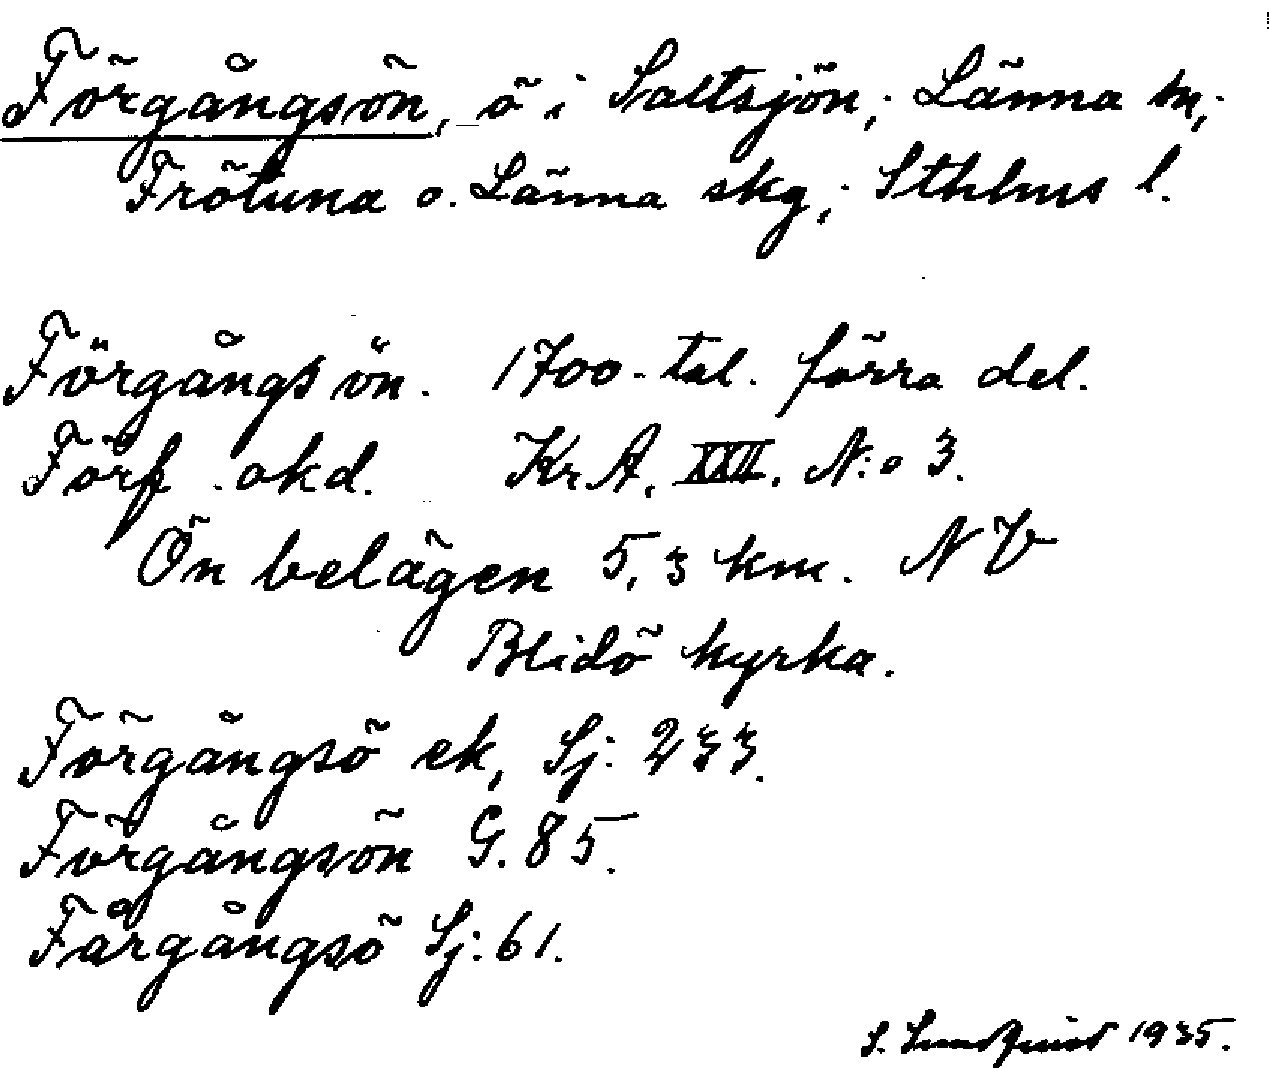 Förgångsön, ö i Saltsjön; Länna sn;
Frötuna o. Länna skg; Sthlms l.
Förgångsön. 1700-tal. förra del.
Förf. okd. Kr. A. XXII. N:o 3.
Ön belägen 5,3 km. NV
Blidö kyrka.
Förgångsö ek, Sj: 233.
Förgångsön G. 85.
Fårgångsö Sj: 61.
S. Lundquist 1935.